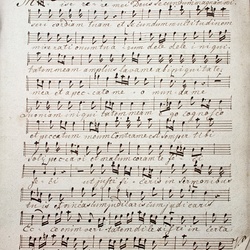 Mise re re mei Deus secundum magnam mi
seri cordiam tuam et secundum multitudinem
mise rati onum tua rum dele dele ini qui
tatem meam amplius lava me ab iniqui tate
mea et a pec cato me o munda me
Quoniam iniqui tatem meam ego cognosco
et peccatum meum contra me est semper ti bi
soli peccavi et malum coram te fe
ci ut justifi ceris in sermonibus
tuis et vincas cum judicaris cum judi caris
Ec ce enim veri tatem dile xi sti in certa